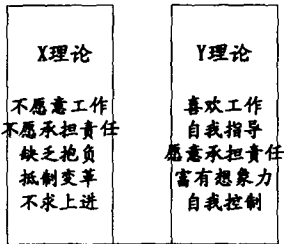 X理论
不愿意工作
不愿承担责任
缺乏抱负
抵制变革
不求上进
Y理论
喜欢工作
自我指导
愿意承担责任
富有想象力
自我控制